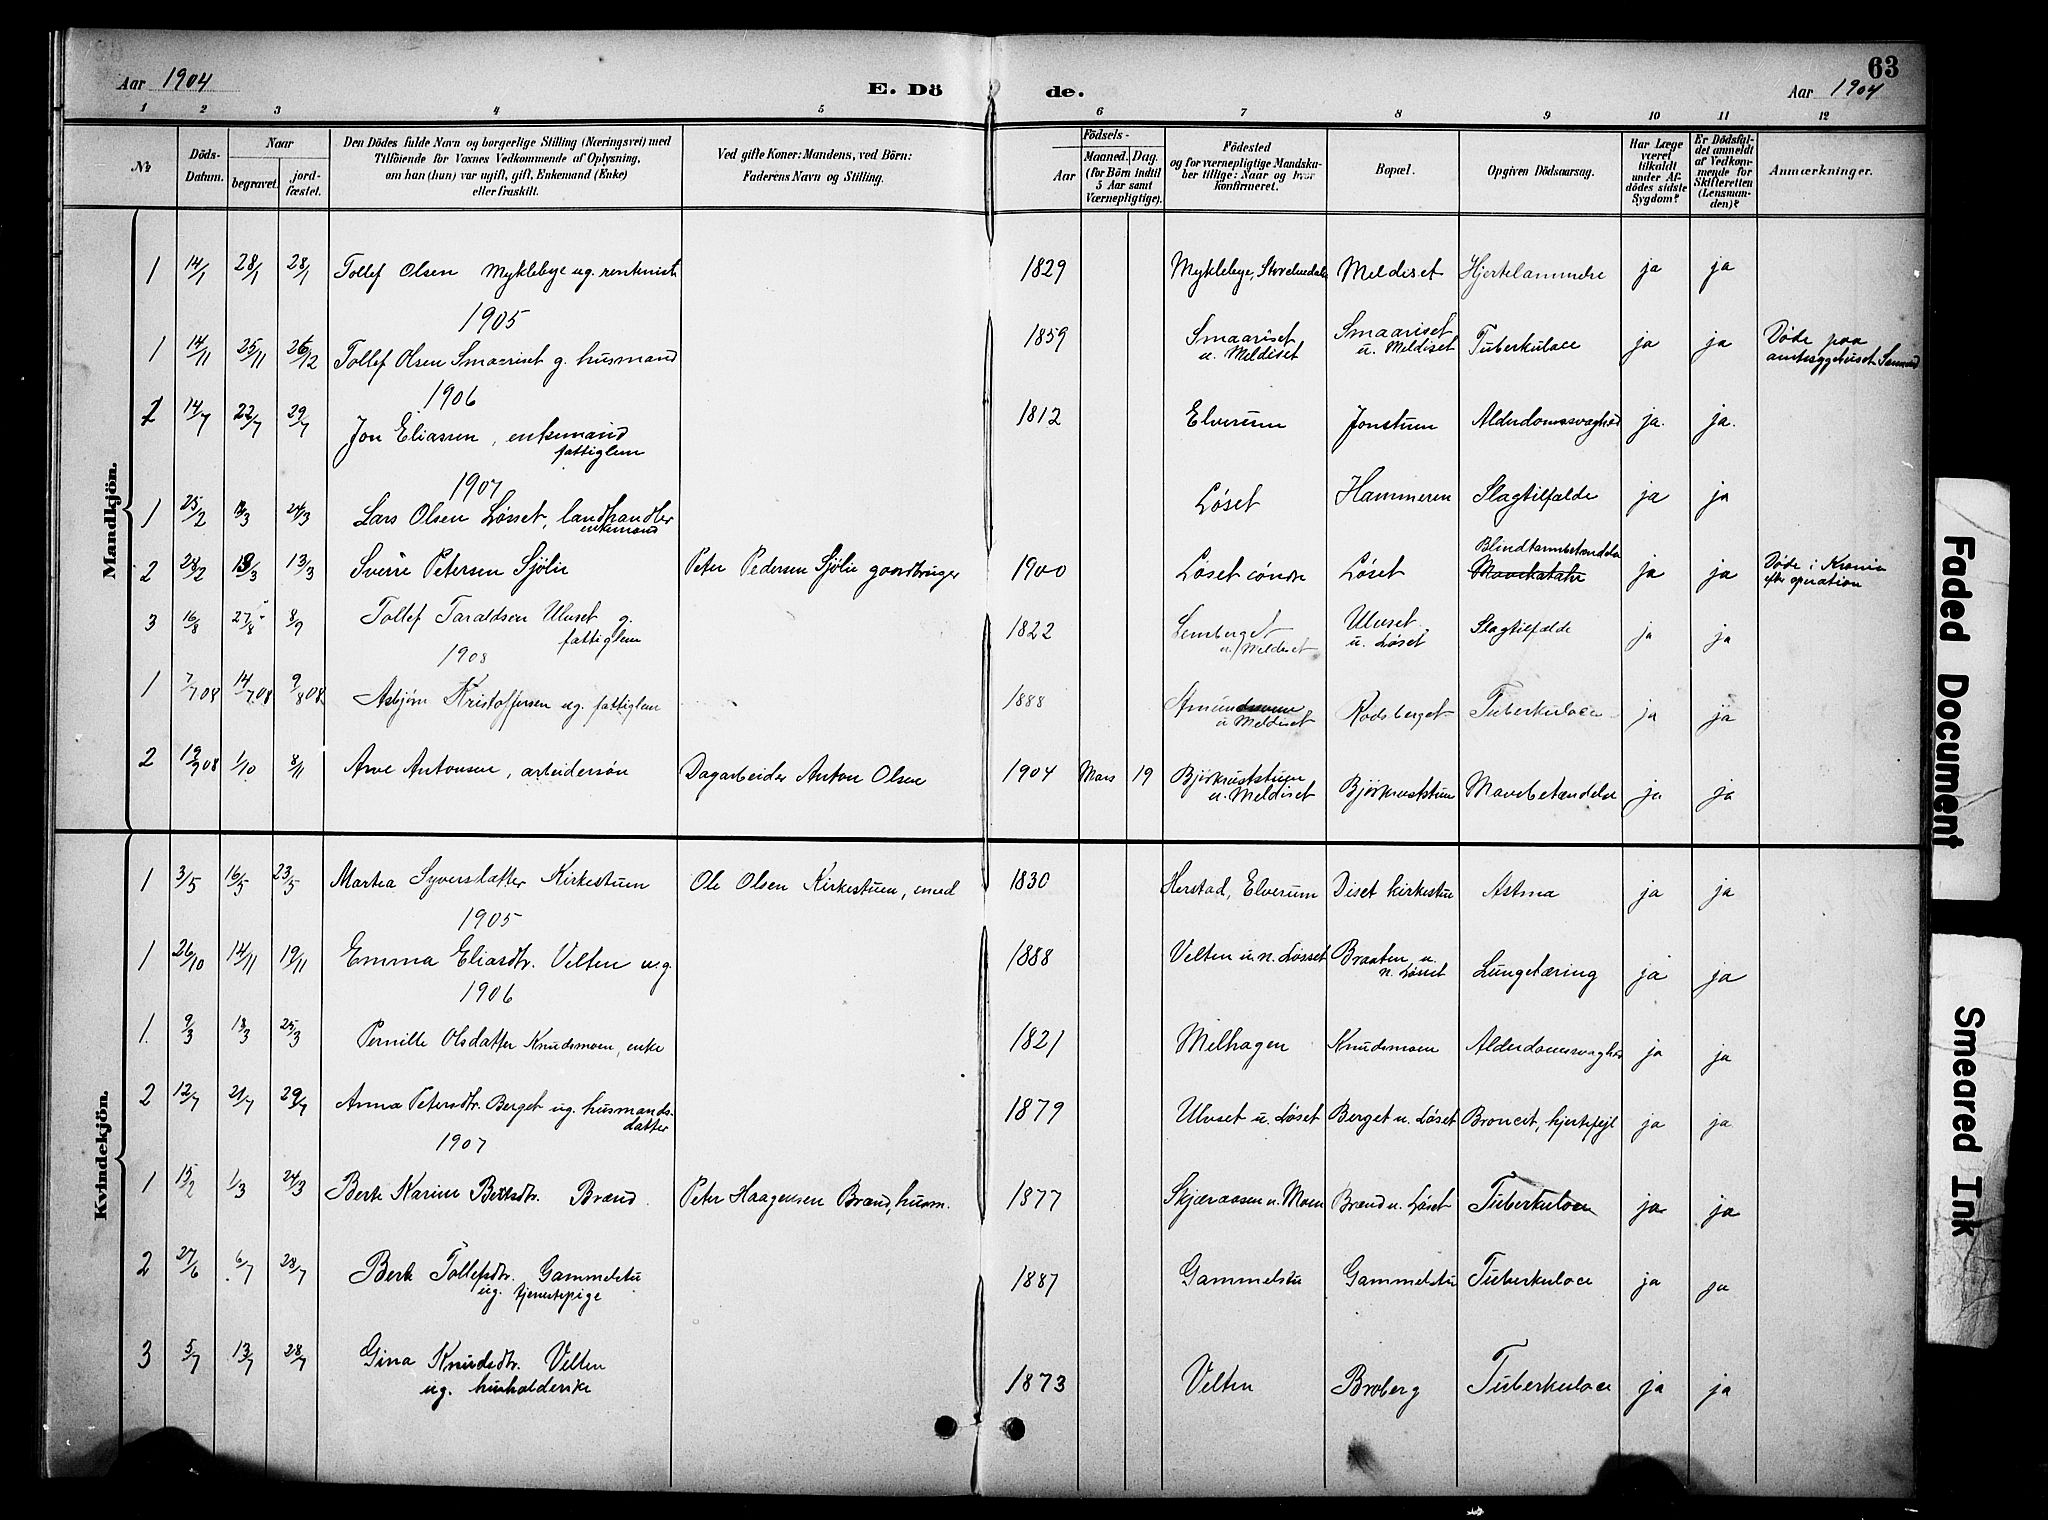 63
Aar 1904
E. Dö de.
Aar 1904
1 2 3 4 5 6 7 8 9 10 11 12
No.
Döds-Datum.
Naar
begravet.
jord-fæstet.
Den Dödes fulde Navn og borgerlige Stilling (Næringsvei) med
Tilföiende for Voxnes Vedkommende af Oplysning,
om han (hun) var ugift, gift, Enkemand (Enke)
eller fraskilt.
Ved gifte Koner: Mandens, ved Börn:
Faderens Navn og Stilling.
Födsels-
Aar
Maaned. Dag.
(for Börn indtil
5 Aar samt
Værnepligtige).
Födested
og for værnepligtige Mandska-
ber tillige: Naar og hvor
konfirmeret.
Bopæl.
Opgiven Dödsaarsag.
Har Læge
været
tilkaldt
under Af-
dödes sidste
Sygdom?
Er Dödsfal-
det anmeldt
af Vedkom-
mende for
Skifteretten
(Lensman-
den)?
Anmærkninger.
Mandkjön.
1 14/1 28/1 28/1 Tollef Olsen Myklebye ug. 1829 Myklebye, Storelvedalen Meldiset Hjertelammelse ja ja
1905
1 14/11 25/11 26/12 Tollef Olsen Smaariset g. husmand 1859 Smaariset u. Meldiset Smaariset u. Meldiset Tuberkuloce ja ja Døde paa amtssygehuset
1906
1 14/7 22/7 29/7 Jon Eliassen, enkemand fattiglem 1812 Elverum Jonstuen Alderdomssvaghed ja. ja.
1907
1 25/2 24/3 Lars Olsen Løsset, landhandler enkemand Løset Hammeren Slagtilfælde ja ja
2 28/2 13/3 13/3 Sverre Petersen Sjølie Peter Pedersen Sjølie gaardbruger 1900 Løset søndre Løset Blindtarmbetændelse Mavekatahr ja ja Døde i Krania efter operation
3 16/8 27/8 8/9 Tollef Taraldsen Ulvset g. fattiglem 1822 Lemberget u/ Meldiset Ulvset u. Løset Slagtilfælde ja ja
1908
1 7/7 08 14/7 08 9/8 08 Asbjørn Kristoffersen ug. fattiglem 1888 u Meldiset Rodsberget Tuberkuloce ja ja
2 19/9 08 1/10 8/11 Arve Antonsen, arbeidersøn Dagarbeider Anton Olsen 1904 Mars 19 Bjørkvuststuen u. Meldiset Bjørkvuststuen Mavebetændelse ja ja
Kvindekjön.
1 3/5 16/5 23/5 Martea Syversdatter Kirkestuen Ole Olsen Kirkestuen, smed 1830 Herstad, Elverum Diset kirkestu Astma ja ja
1905
1 26/10 14/11 19/11 Emma Eliasdtr. Velten u.g. 1888 Velten u. n. Løsset Braaten u. n. Løset Lungetæring ja ja
1906
1. 9/3 13/3 25/3 Pernille Olsdatter Knudsmoen, enke 1821 Melhagen Knudsmoen Alderdomssvaghed ja ja
2 12/7 21/7 29/7 Anna Petersdtr. Berget ug. husmands-datter 1879 Ulvset u. Løset Berget u. Løset Broncit, hjertefejl ja ja
1907
1 15/2 1/3 24/3 Berte Karine Bertsdtr. Brænd. Peter Haagensen Brænd, husm. 1877 Skjæraasen u. Moen Brænd u. Løset Tuberkuloce ja ja
2 27/6 6/7 28/7 Berte Tollefsdtr. Gammelstu ug. tjenestepige 1887 Gammelstu Gammelstu Tuberkuloce ja ja
3 5/7 13/7 28/7 Gina Knudsdtr. Velten ug. husholderske 1873 Velten Broberg Tuberkuloce ja ja
Faded Document
Smeared Ink